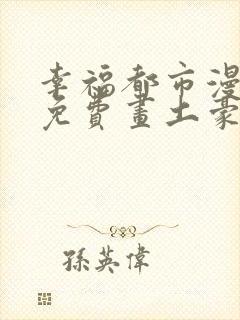 幸福都市漫
免費畫土豪
孫英偉